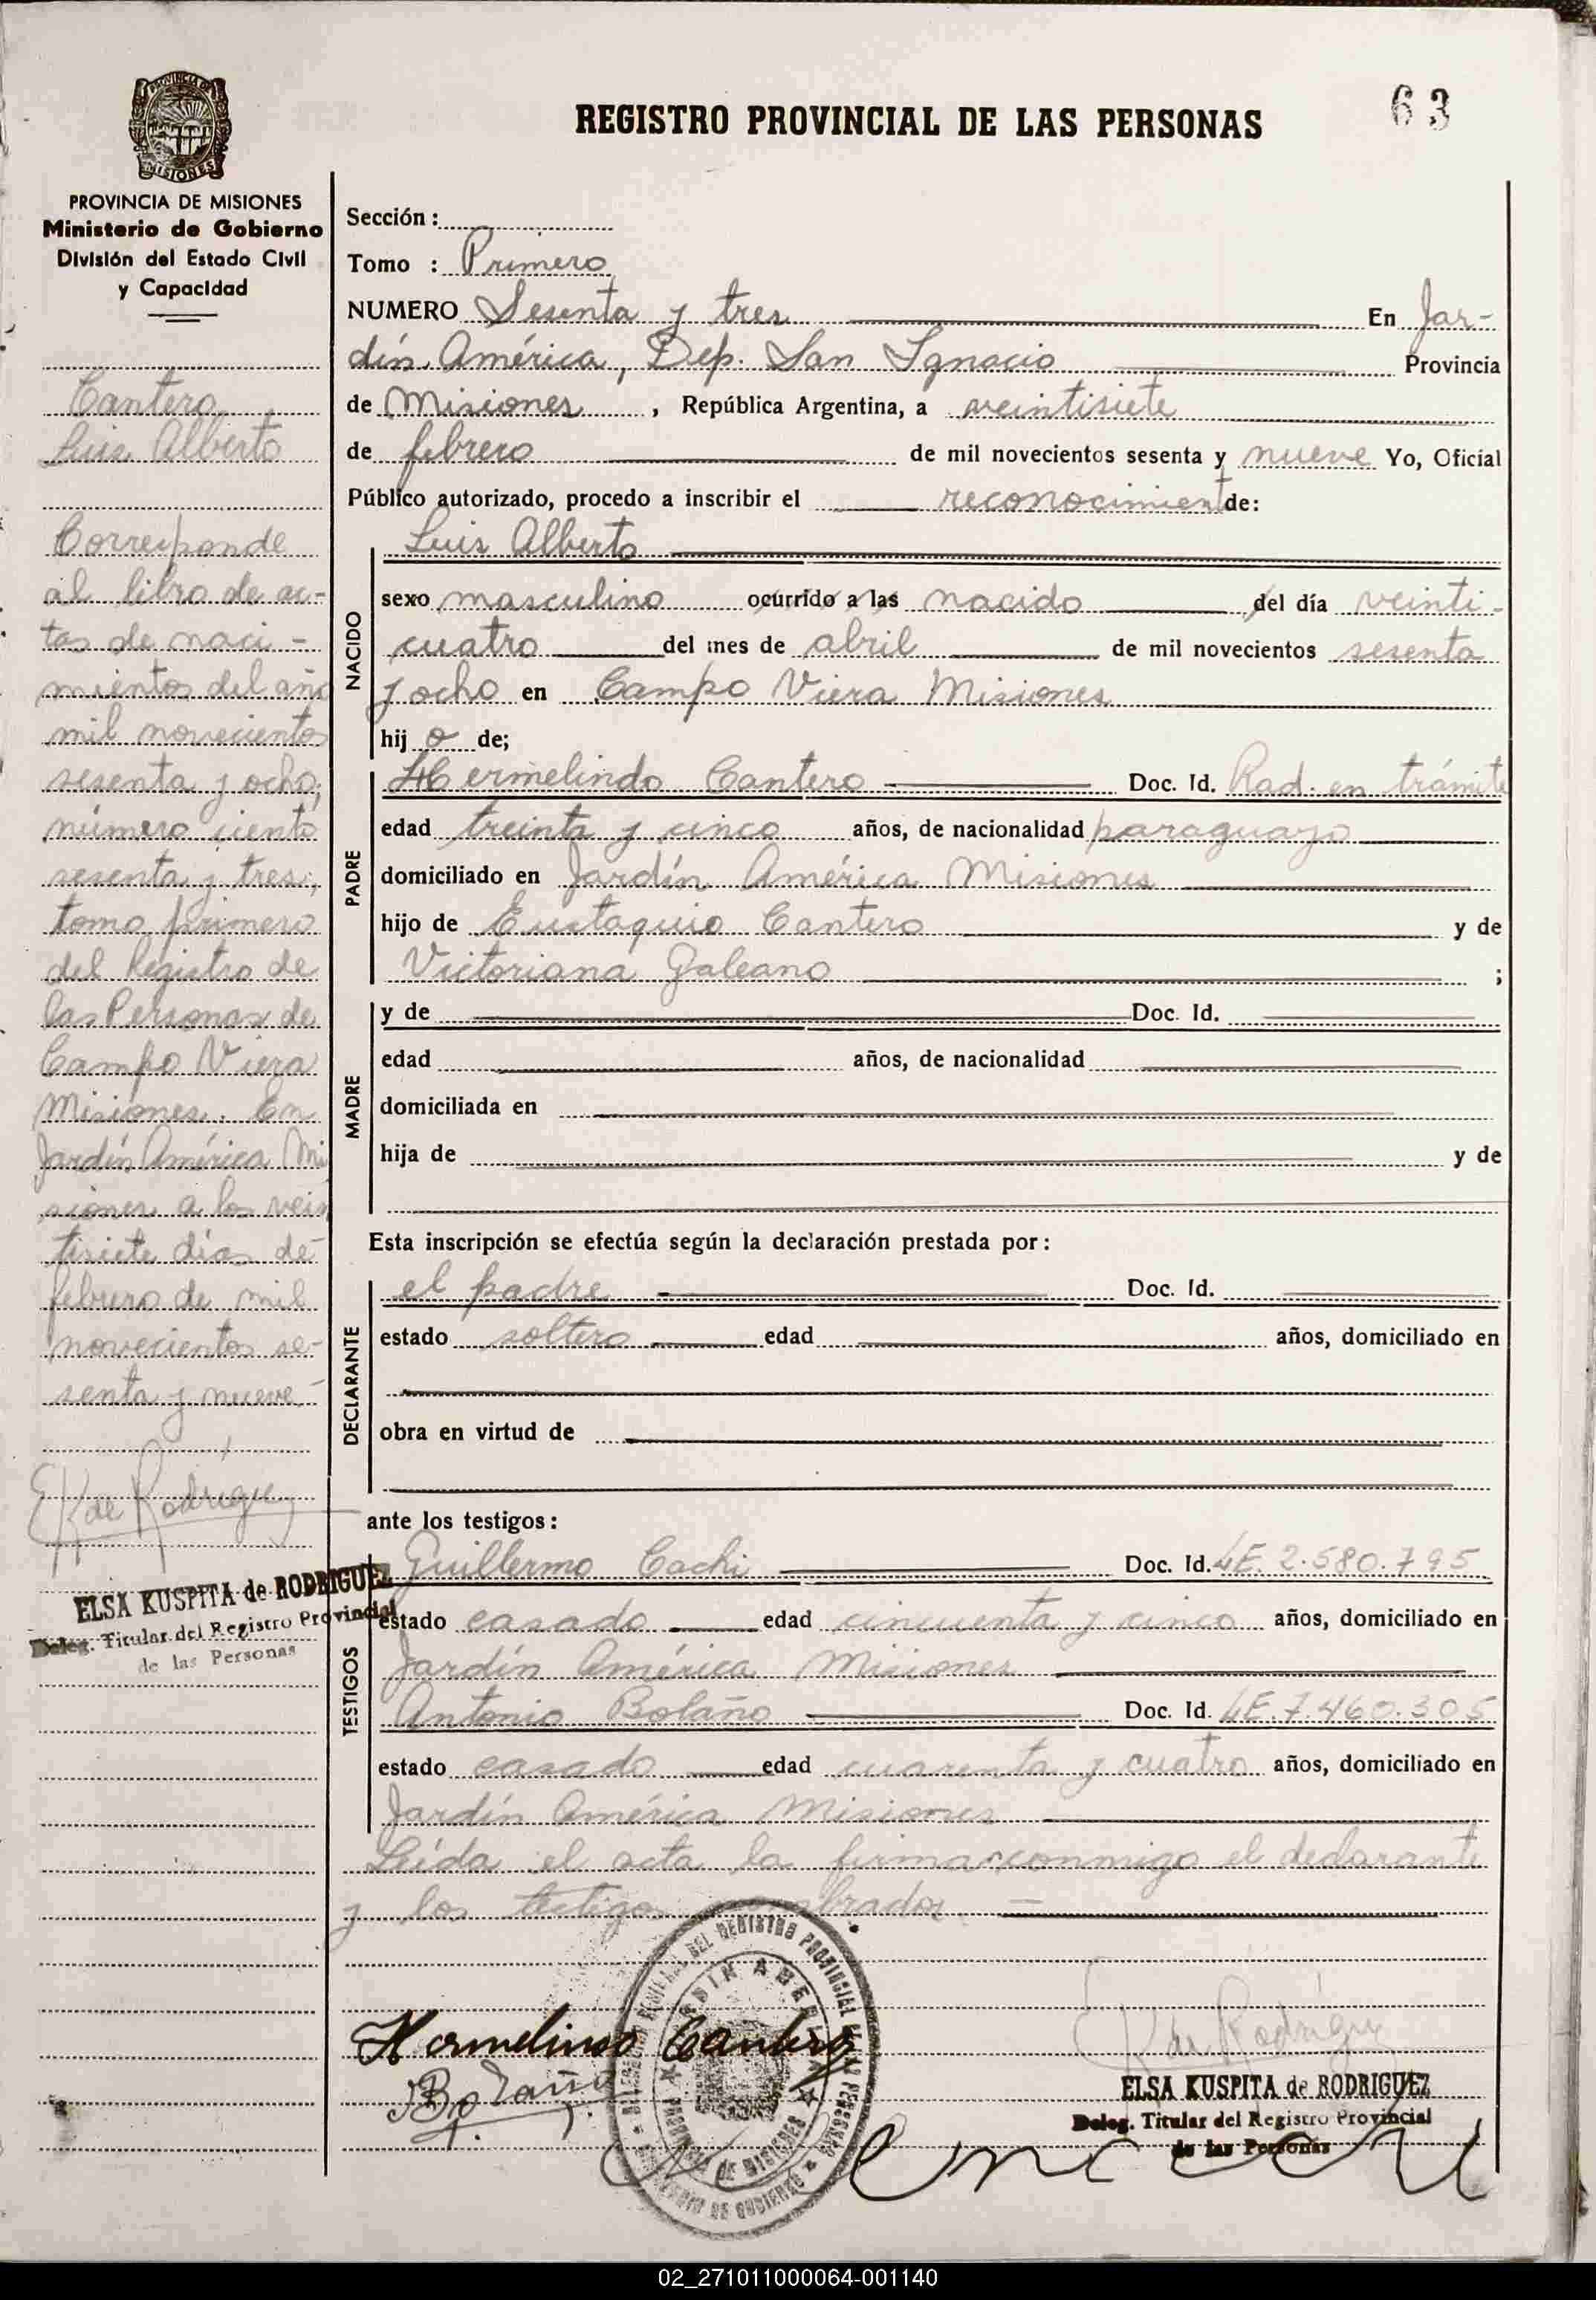 REGISTRO PROVINCIAL DE LAS PERSONAS
63
PROVINCIA DE MISIONES
Ministerio de Gobierno
División del Estado Civil
y Capacidad
Cantero
Luis Alberto
Corresponde
al libro de ac-
tas de naci-
mientos del año
mil novecientos
sesenta y ocho,
número ciento
sesenta y tres,
tomo primero
del Registro de
las Personas de
Campo Viera
Misiones. En
Jardín América Mi
siones a los vein
tisiete días de
febrero de mil
novecientos se-
senta y nueve.-
EK de Rodríguez
ELSA KUSPITA de RODRIGUEZ
Deleg. Titular del Registro Provincial
de las Personas
Sección :
Tomo : Primero
NUMERO Sesenta y tres En Jar-
dín América, Dep. San Ignacio Provincia
de Misiones , República Argentina, a veintisiete
de febrero de mil novecientos sesenta y nueve Yo, Oficial
Público autorizado, procedo a inscribir el reconocimient de:
NACIDO
Luis Alberto
sexo masculino ocurrido a las nacido del día veinti-
cuatro del mes de abril de mil novecientos sesenta
y ocho en Campo Viera Misiones
hij o de;
PADRE
Hermelindo Cantero Doc. Id. Rad. en trámite
edad treinta y cinco años, de nacionalidad paraguayo
domiciliado en Jardín América Misiones
hijo de Eustaquio Cantero y de
Victoriana Galeano ;
MADRE
y de Doc. Id.
edad años, de nacionalidad
domiciliada en
hija de y de
Esta inscripción se efectúa según la declaración prestada por :
DECLARANTE
el padre Doc. Id.
estado soltero edad años, domiciliado en
obra en virtud de
ante los testigos :
TESTIGOS
Guillermo Cachi Doc. Id. LE. 2.580.795
estado casado edad cincuenta y cinco años, domiciliado en
Jardín América Misiones
Antonio Bolaño Doc. Id. LE. 7.460.305
estado casado edad cuarenta y cuatro años, domiciliado en
Jardín América Misiones
Leída el acta la firman conmigo el declarante
y los testigos
Hermelindo Cantero
Bolaño
PROVINCIA DE MISIONES
EK de Rodríguez
ELSA KUSPITA de RODRIGUEZ
Deleg. Titular del Registro Provincial
de las Personas
02_271011000064-001140